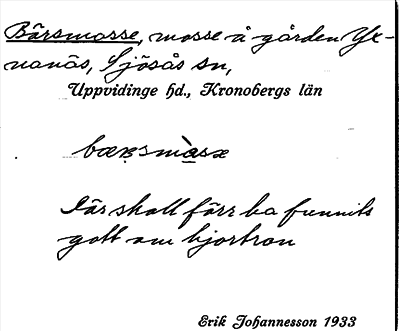 Bårsmosse, mosse å gården Yx-
nanäs, Sjösås sn,
Uppvidinge hd., Kronobergs län
Där skall förr ha funnits
gott om hjortron
Erik Johannesson 1933